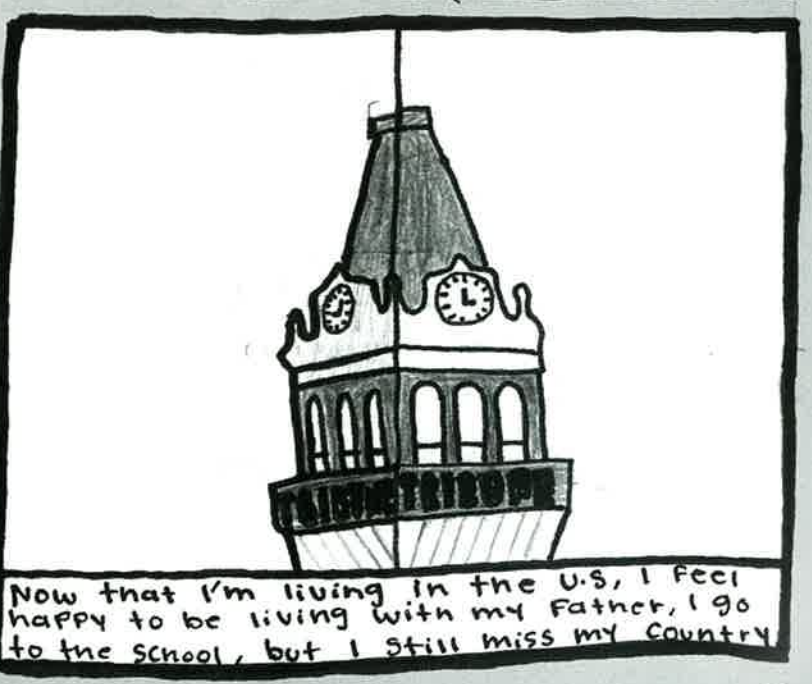 TRIBUNE TRIBUNE
Now that I'm living in the U.S, I feel
happy to be living with my Father, I go
to the school, but I still miss my country